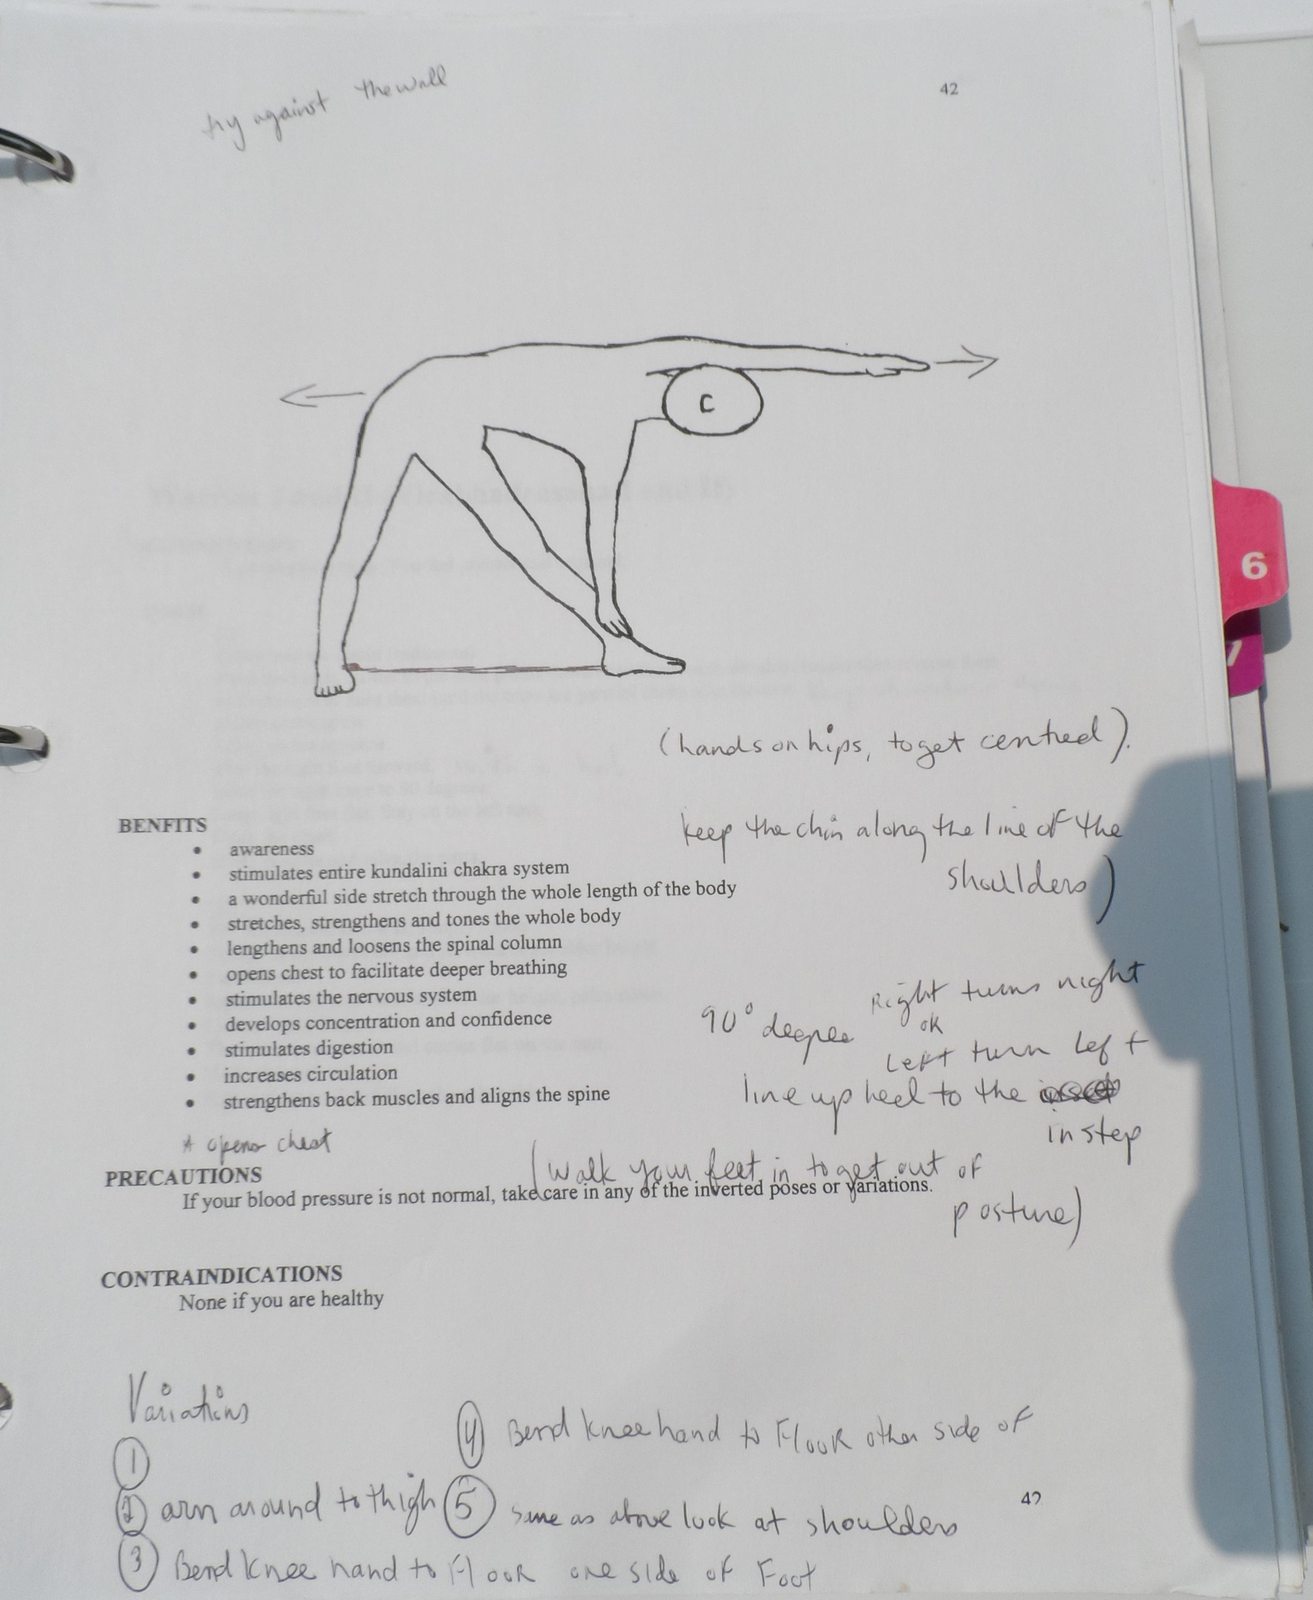 try against the wall
42
C
6
7
(hands on hips, to get centred).
BENFITS
keep the chin along the line of the
shoulders)
• awareness
• stimulates entire kundalini chakra system
• a wonderful side stretch through the whole length of the body
• stretches, strengthens and tones the whole body
• lengthens and loosens the spinal column
• opens chest to facilitate deeper breathing
• stimulates the nervous system
• develops concentration and confidence
• stimulates digestion
• increases circulation
• strengthens back muscles and aligns the spine
90° degree
Right turns right
ok
Left turn Left
line up heel to the
instep
* opens chest
PRECAUTIONS
(walk your feet in to get out of
posture)
If your blood pressure is not normal, take care in any of the inverted poses or variations.
CONTRAINDICATIONS
None if you are healthy
Variations
①
② arm around to thigh
③ Bend knee hand to Floor one side of Foot
④ Bend knee hand to Floor other side of
⑤ same as above look at shoulders
42